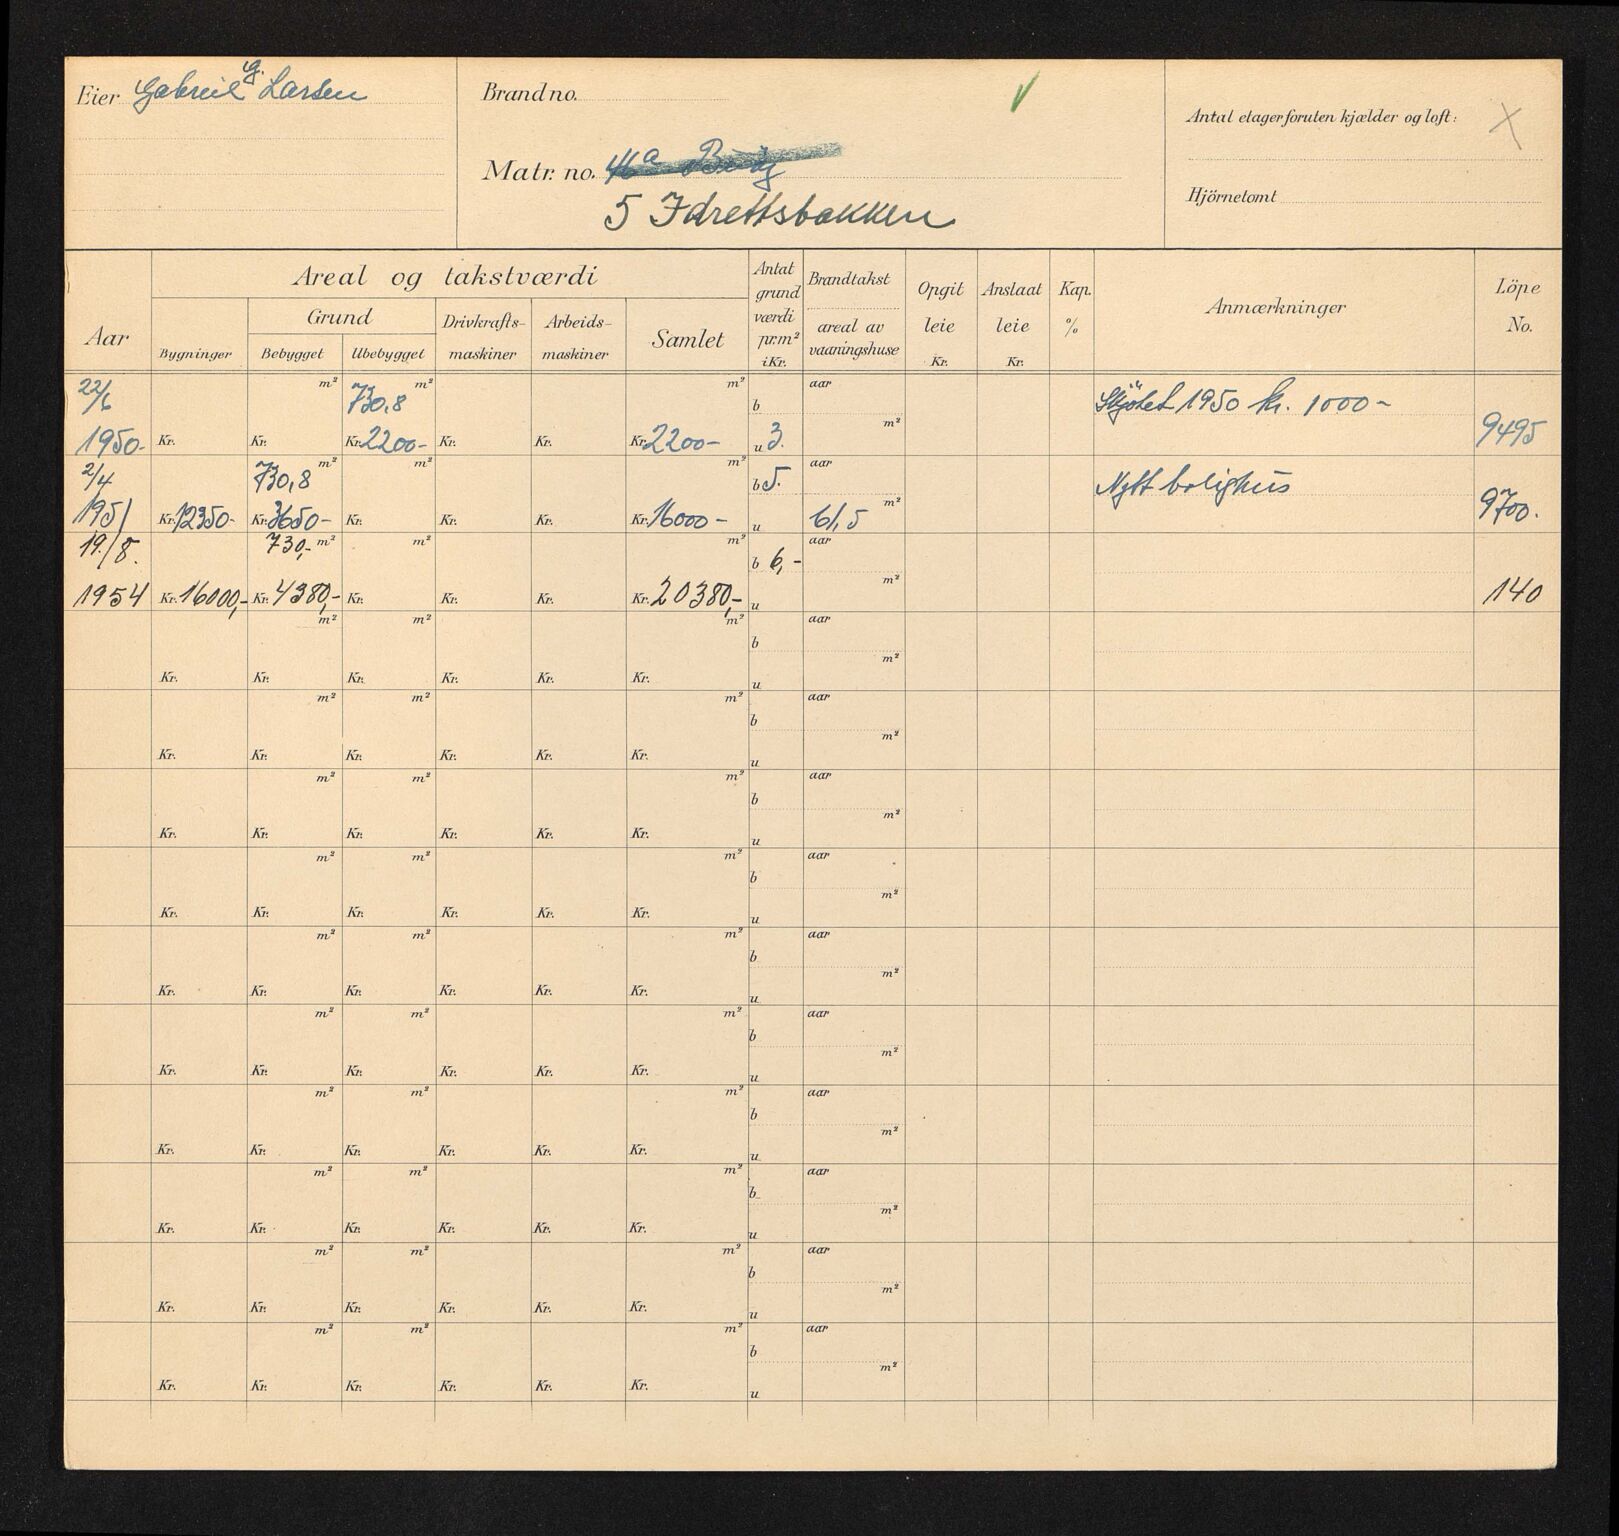 Eier Gabriel G. Larsen
Brand no.
Matr. no.
5 Idrettsbakken
Antal etager foruten kjælder og loft:
Hjörnetomt
Aar
Areal og takstværdi
Bygninger
Grund
Bebygget Ubebygget
Drivkrafts-maskiner
Arbeids-maskiner
Samlet
Antat grund værdi pr.m² i Kr.
Brandtakst
areal av vaaningshuse
Opgit leie Kr.
Anslaat leie Kr.
Kap. %
Anmærkninger
Löpe No.
22/6 m² 730,8 m² m² b aar Skjøtet 1950 kr. 1000-
1950- Kr. Kr. Kr. 2200- Kr. Kr. Kr. 2200- u 3. m² 9495
2/4 730,8 m² m² m² b 5. aar Nytt bolighus
1951 Kr. 12350- Kr. 3650- Kr. Kr. Kr. Kr. 16000- u 61,5 m² 9700.
19./8. 730,- m² m² m² b 6,- aar
1954 Kr. 16000,- Kr. 4380,- Kr. Kr. Kr. Kr. 20380,- u m² 140
m² m² m² b aar
Kr. Kr. Kr. Kr. Kr. Kr. u m²
m² m² m² b aar
Kr. Kr. Kr. Kr. Kr. Kr. u m²
m² m² m² b aar
Kr. Kr. Kr. Kr. Kr. Kr. u m²
m² m² m² b aar
Kr. Kr. Kr. Kr. Kr. Kr. u m²
m² m² m² b aar
Kr. Kr. Kr. Kr. Kr. Kr. u m²
m² m² m² b aar
Kr. Kr. Kr. Kr. Kr. Kr. u m²
m² m² m² b aar
Kr. Kr. Kr. Kr. Kr. Kr. u m²
m² m² m² b aar
Kr. Kr. Kr. Kr. Kr. Kr. u m²
m² m² m² b aar
Kr. Kr. Kr. Kr. Kr. Kr. u m²
m² m² m² b aar
Kr. Kr. Kr. Kr. Kr. Kr. u m²